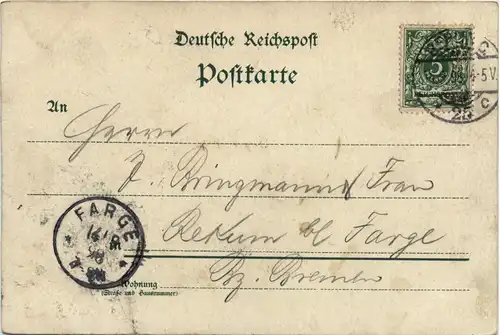 Deutsche Reichspost
Postkarte
An
Herrn
J. Bringmann Frau
Rekum b/ Farge
Bz. Bremen
Wohnung
(Straße und Hausnummer)
FARGE
5
4-5 V.
25 C